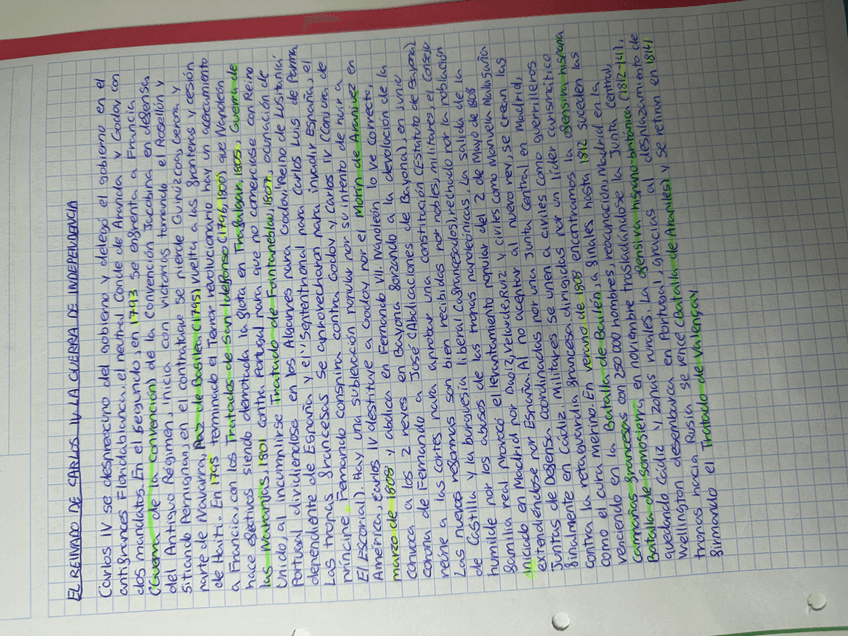 EL REINADO DE CARLOS IV. LA GUERRA DE INDEPENDENCIA
Carlos IV se desprevecino del gobierno y delegó el gobierno en el
antifrances Floridablanca, el neutral Conde de Aranda y Godoy con
dos mandatos. En el segundo, en 1793 se enfrenta a Francia
(Guerra de la convención) de la Convención Jacobina en defensa
del Antiguo Régimen, inicia con victorias tomando el Rosellón y
sitiando Perpignan, en el contrataque se pierde Guipúzcoa, Gerona y
parte de Navarra, Paz de Basilea (1795) vuelta a las fronteras y cesión
de Haití. En 1795 terminado el Terror revolucionario hay un acercamiento
a Francia, con los Tratados de San Ildefonso (1796, 1800) que Napoleón
hace efectivos siendo derrotada la flota en Trafalgar 1805, Guerra de
las Naranjas 1801 contra Portugal para que no comerciase con Reino
Unido, al incumplirse Tratado de Fontainebleau 1807, ocupación de
Portugal dividiendose en los Algarves para Godoy, Reino de Lusitania
dependiente de España y el Septentrional para Carlos Luis de Parma
Las tropas francesas se aprovecharon para invadir España, el
príncipe Fernando conspira contra Godoy y Carlos IV (Conjura de
El Escorial). Hay una sublevación popular por su intento de huir a
América, Carlos IV destituye a Godoy por el Motín de Aranjuez en
marzo de 1808 y abdica en Fernando VII. Napoleón lo ve correcto,
convoca a los 2 reyes en Bayona forzando a la devolución de la
corona de Fernando a José (Abdicaciones de Bayona), en junio
reúne a las cortes para aprobar una constitución (Estatuto de Bayona)
Las nuevas reformas son bien recibidas por nobles, militares, el Consejo
de Castilla y la burguesía liberal (afrancesados), rechazado por la población
humilde por los abusos de las tropas napoleónicas. La salida de la
familia real provocó el levantamiento popular del 2 de Mayo de 1808
iniciado en Madrid por Daoiz, Velarde, Ruiz y civiles como Manuela Malasaña
extendiéndose por España. Al no aceptar al nuevo rey, se crean las
Juntas de Defensa coordinadas por una Junta Central en Madrid,
finalmente en Cádiz. Militares se unen a civiles como guerrilleros
contra la retaguardia francesa dirigidas por un líder carismático
como el cura Merino. En verano de 1808 encontramos la ofensiva hispana
venciendo en la Batalla de Bailén, a finales hasta 1812 suceden las
campañas francesas con 250 000 hombres, reocupación Madrid en la
Batalla de Somosierra en noviembre trasladándose la Junta Central,
quedando Cádiz y zonas rurales. La ofensiva hispano-británica (1812-14),
Wellington desembarca en Portugal, gracias al desplazamiento de
tropas hacia Rusia se vence (Batalla de Arapiles) y se retiran en 1814
firmando el Tratado de Valençay